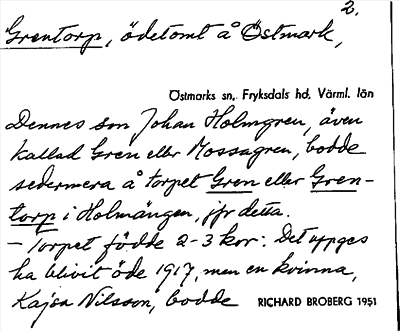 2.
Grentorp, ödetomt å Östmark,
Östmarks sn, Fryksdals hd, Värml. län
Dennes son Johan Holmgren, även
kallad Gren eller Mossagren, bodde
sedermera å torpet Gren eller Gren-
torp i Holmängen, jfr detta.
– Torpet födde 2-3 kor. Det uppges
ha blivit öde 1917, men en kvinna,
Kajsa Nilsson, bodde
RICHARD BROBERG 1951